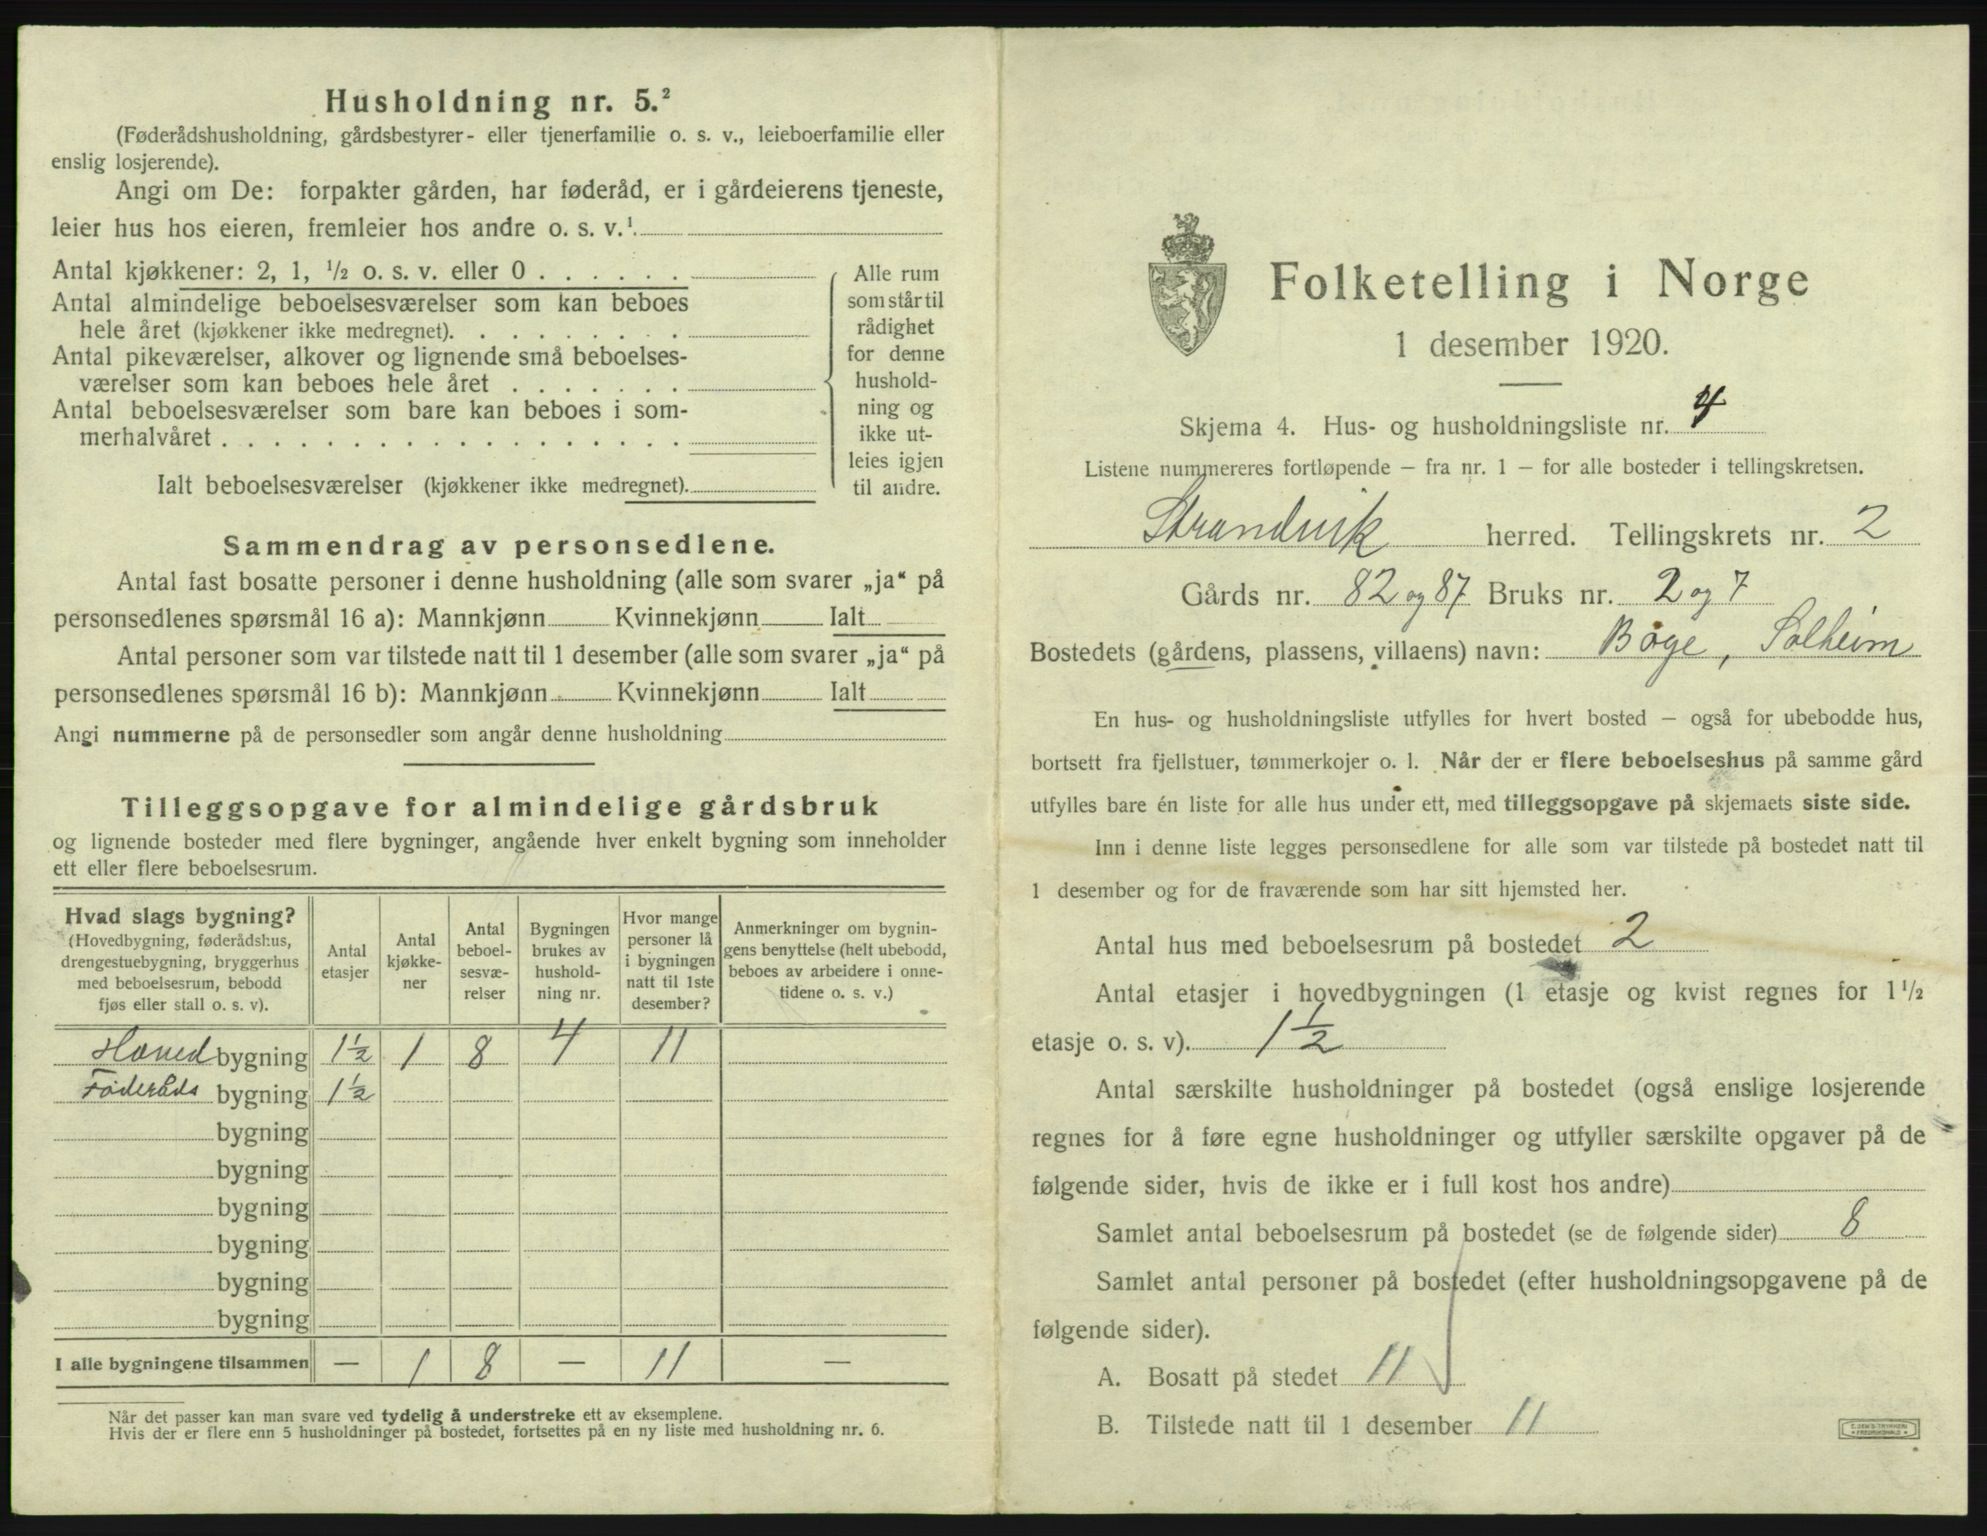 Husholdning nr. 5.²
(Føderådshusholdning, gårdsbestyrer- eller tjenerfamilie o. s. v., leieboerfamilie eller
enslig losjerende).
Angi om De: forpakter gården, har føderåd, er i gårdeierens tjeneste,
leier hus hos eieren, fremleier hos andre o. s. v.¹
Antal kjøkkener: 2, 1, ½ o. s. v. eller 0 . . . . . .
Antal almindelige beboelsesværelser som kan beboes
hele året (kjøkkener ikke medregnet). . . . . . . . .
Antal pikeværelser, alkover og lignende små beboelses-
værelser som kan beboes hele året . . . . . . .
Antal beboelsesværelser som bare kan beboes i som-
merhalvåret . . . . . . . . . . . . . . . . . .
Ialt beboelsesværelser (kjøkkener ikke medregnet).
Alle rum
som står til
rådighet
for denne
hushold-
ning og
ikke ut-
leies igjen
til andre.
Sammendrag av personsedlene.
Antal fast bosatte personer i denne husholdning (alle som svarer „ja“ på
personsedlenes spørsmål 16 a): Mannkjønn Kvinnekjønn Ialt
Antal personer som var tilstede natt til 1 desember (alle som svarer „ja“ på
personsedlenes spørsmål 16 b): Mannkjønn Kvinnekjønn Ialt
Angi nummerne på de personsedler som angår denne husholdning
Tilleggsopgave for almindelige gårdsbruk
og lignende bosteder med flere bygninger, angående hver enkelt bygning som inneholder
ett eller flere beboelsesrum.
Hvad slags bygning?
(Hovedbygning, føderådshus,
drengestuebygning, bryggerhus
med beboelsesrum, bebodd
fjøs eller stall o. s. v).
Antal
etasjer
Antal
kjøkke-
ner
Antal
beboel-
sesvæ-
relser
Bygningen
brukes av
hushold-
ning nr.
Hvor mange
personer lå
i bygningen
natt til 1ste
desember?
Anmerkninger om bygnin-
gens benyttelse (helt ubebodd,
beboes av arbeidere i onne-
tidene o. s. v.)
Hoved bygning 1½ 1 8 4 11
Föderåds bygning 1½
bygning
bygning
bygning
bygning
bygning
bygning
I alle bygningene tilsammen — 1 8 — 11 —
Når det passer kan man svare ved tydelig å understreke ett av eksemplene.
Hvis der er flere enn 5 husholdninger på bostedet, fortsettes på en ny liste med husholdning nr. 6.
Folketelling i Norge
1 desember 1920.
Skjema 4. Hus- og husholdningsliste nr. 4
Listene nummereres fortløpende — fra nr. 1 — for alle bosteder i tellingskretsen.
Strandvik herred. Tellingskrets nr. 2
Gårds nr. 82 og 87 Bruks nr. 2 og 7
Bostedets (gårdens, plassens, villaens) navn: Boge, Solheim
En hus- og husholdningsliste utfylles for hvert bosted — også for ubebodde hus,
bortsett fra fjellstuer, tømmerkojer o. l. Når der er flere beboelseshus på samme gård
utfylles bare én liste for alle hus under ett, med tilleggsopgave på skjemaets siste side.
Inn i denne liste legges personsedlene for alle som var tilstede på bostedet natt til
1 desember og for de fraværende som har sitt hjemsted her.
Antal hus med beboelsesrum på bostedet 2
Antal etasjer i hovedbygningen (1 etasje og kvist regnes for 1½
etasje o. s. v). 1½
Antal særskilte husholdninger på bostedet (også enslige losjerende
regnes for å føre egne husholdninger og utfyller særskilte opgaver på de
følgende sider, hvis de ikke er i full kost hos andre)
Samlet antal beboelsesrum på bostedet (se de følgende sider) 8
Samlet antal personer på bostedet (efter husholdningsopgavene på de
følgende sider).
A. Bosatt på stedet 11
B. Tilstede natt til 1 desember 11